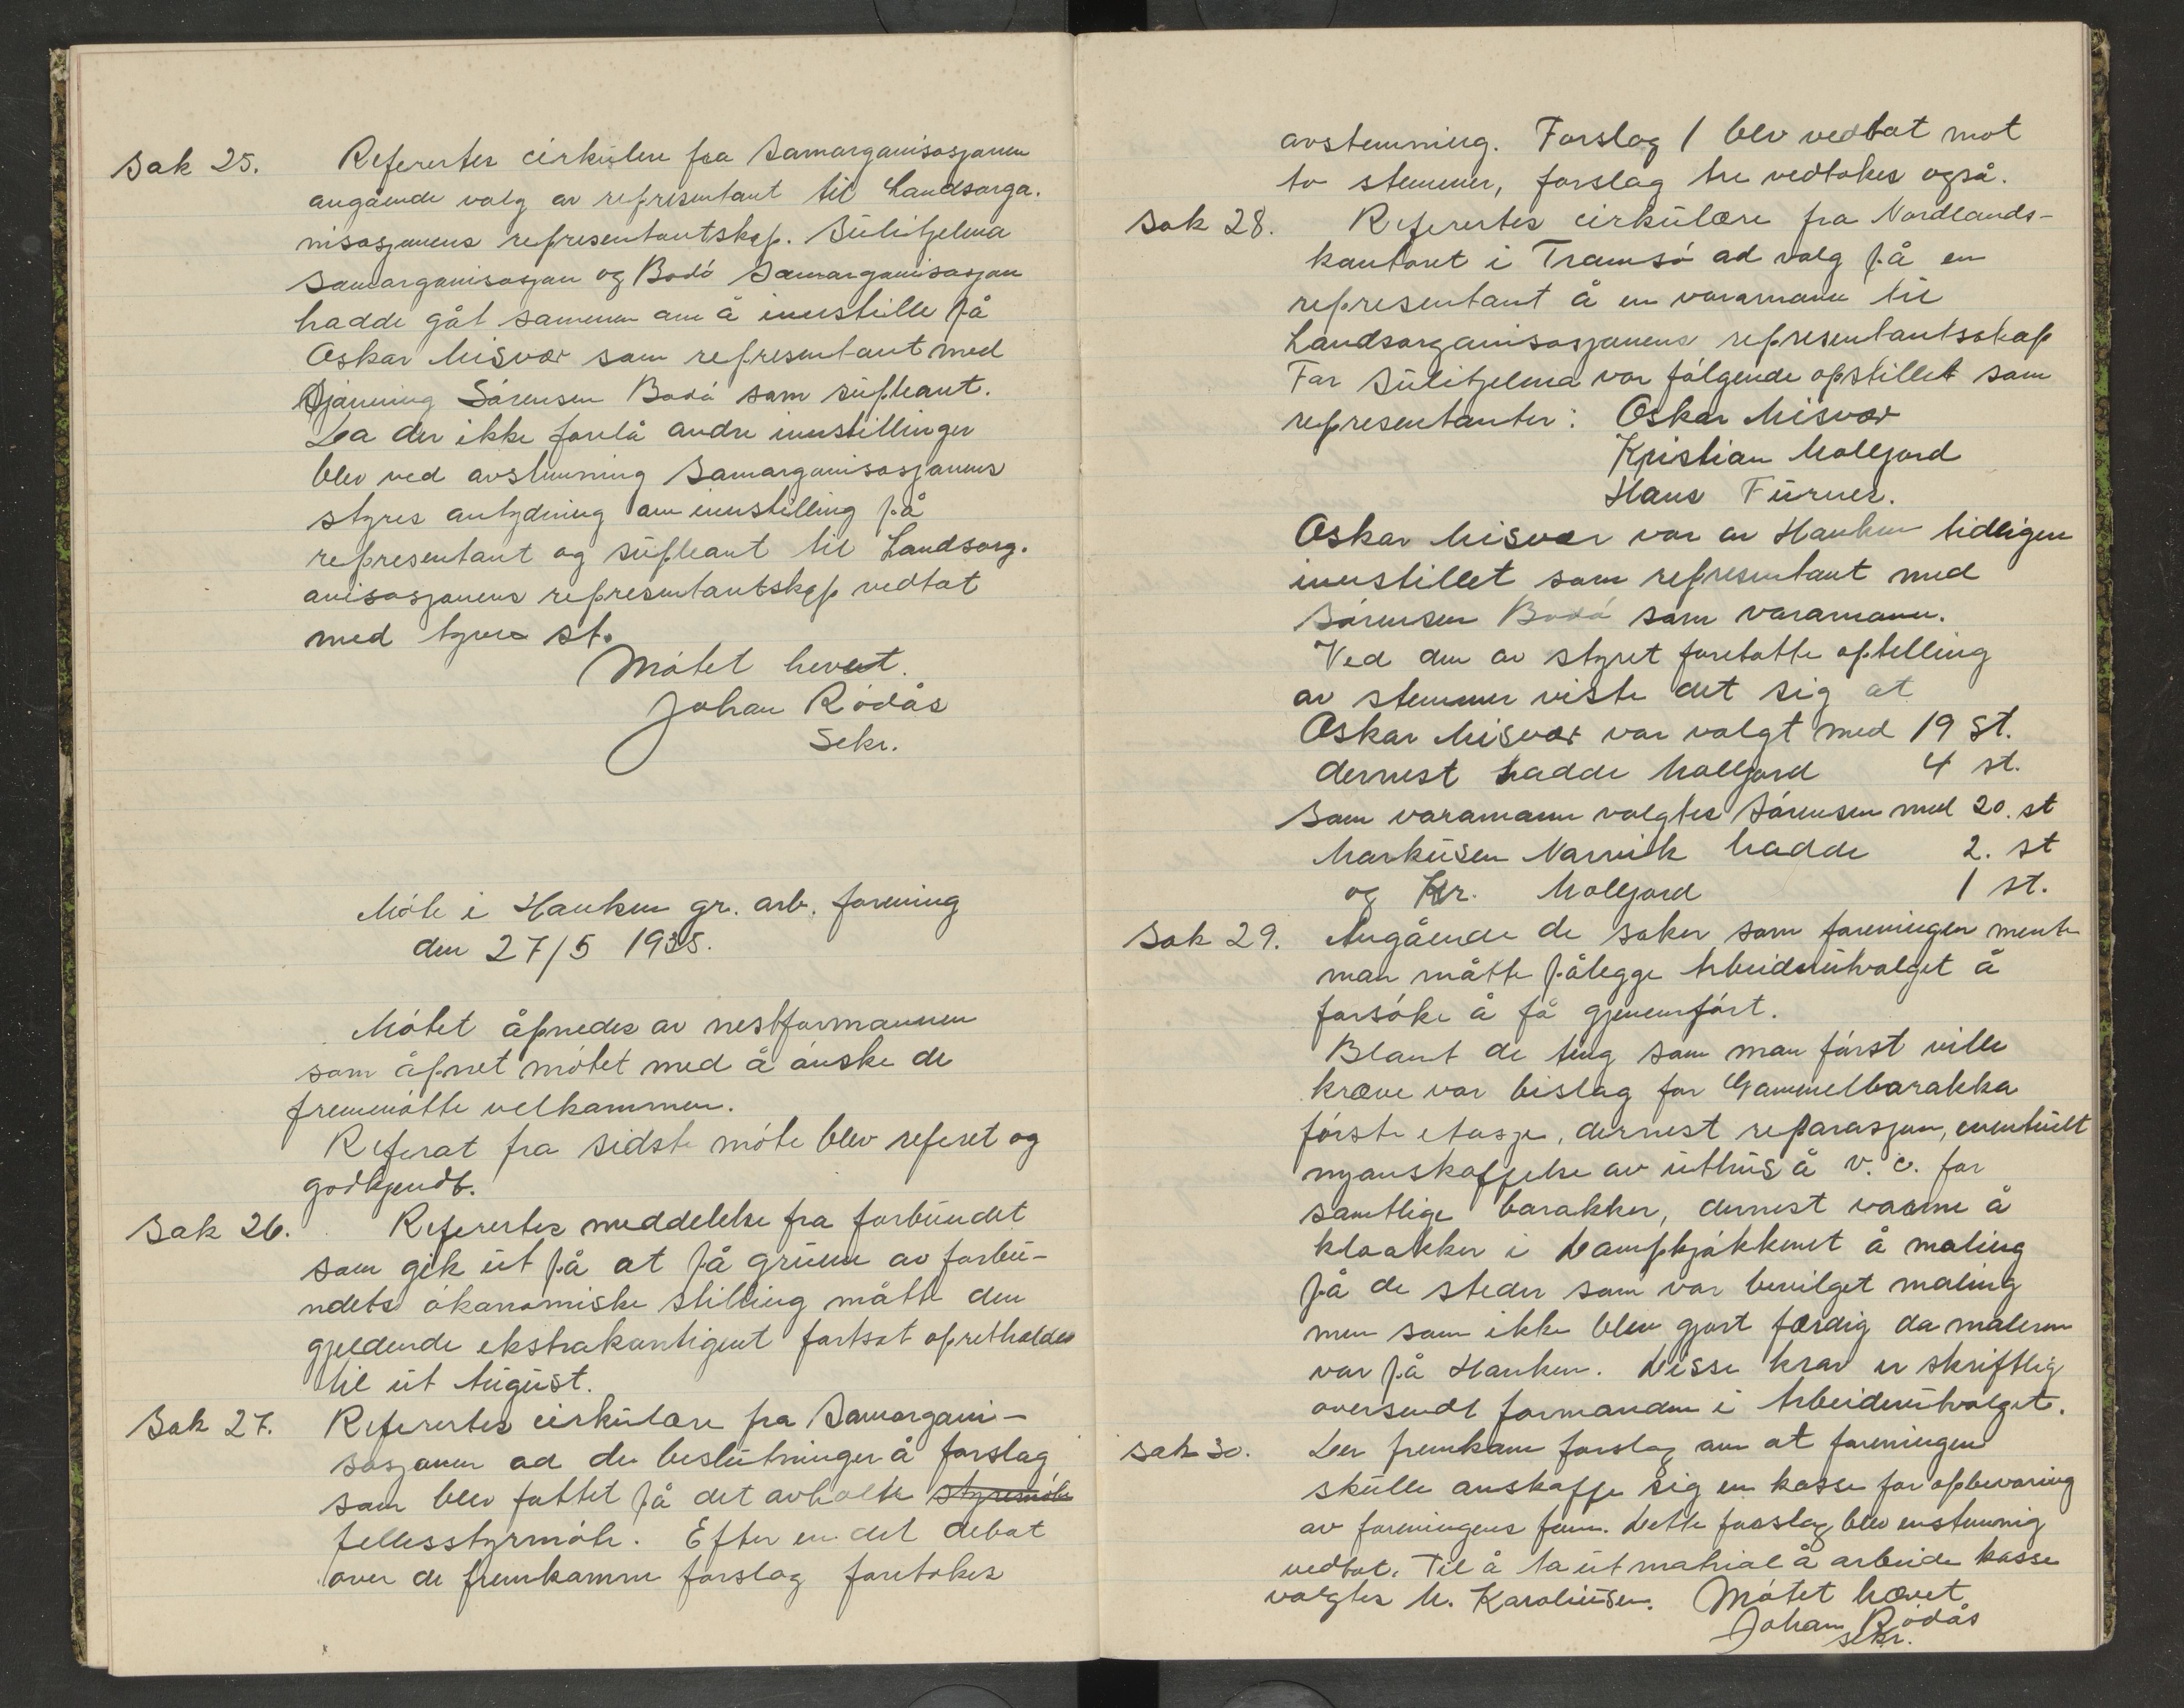 Sak 25. Referertes cirkulere fra Samorganisasjonen
angående valg av representant til Landsorga.
nisasjonens representantskap. Sulitjelma
Samorganisasjon og Bodø Samorganisasjon
hadde gåt sammen om å innstille på
Oskar Misvær som representant med
Sørensen Bodø som supleant.
Da der ikke forelå andre innstillinger
blev ved avstemning Samorganisasjonens
styres antydning om innstilling på
representant og supleant til Landsorg.
anisasjonens representantskap vedtat
med tyve st.
Møtet hevet.
Johan Rödås
Sekr.
Møte i Hanken gr. arb. forening
den 27/5 1935.
Møtet åpnedes av nestformannen
som åpnet møtet med å ønske de
fremmøtte velkommen.
Referat fra sidste møte blev referet og
godkjendt.
Sak 26. Referertes meddelelse fra forbundet
som gik ut på at på grunn av forbu-
ndets økonomiske stilling måtte den
gjeldende ekstrakontigent fortsat opretholdes
til ut August.
Sak 27. Referertes cirkulære fra Samorgani-
sasjonen ad de beslutninger å forslag
som blev fattet på det avholte styresmøte
fellesstyrmøte. Efter en del debat
over de fremkomne forslag foretokes
avstemning. Forslag 1 blev vedtat mot
to stemmer, forslag tre vedtokes også.
Sak 28. Referertes cirkulære fra Nordlands-
kontoret i Tromsø ad valg på en
representant å en varamann til
Landsorganisasjonens representantskap
For Sulitjelma var følgende opstillet som
representanter: Oskar Misvær
Kristian Molljord
Hans Furnes.
Oskar Misvær var av Hanken tidligen
innstillet som representant med
Sørensen Bodø som varamann.
Ved den av styret foretatte optelling
av stemmer viste det sig at
Oskar Misvær var valgt med 19 st.
dernest hadde Molljord 4 st.
Som varamann valgtes Sørensen med 20. st
Markusen Narvik hadde 2. st
og Kr. Molljord 1 st.
Sak 29. Angående de saker som foreningen mente
man måtte pålegge Arbeidsutvalget å
forsøke å få gjenemført.
Blant de ting som man først ville
kræve var bislag for Gammelbarakka
første etasje, dernest reparasjon, eventuelt
nyanskaffelse av uthus å v. c. for
samtlige barakker, dernest varme å
kloakker i Dampkjøkkenet å maling
på de steder som var bevilget maling
men som ikke blev gjort færdig da maleren
var på Hanken. Disse krav er skriftlig
oversendt formanden i Arbeidsutvalget.
Sak 30. Der fremkom forslag om at foreningen
skulle anskaffe sig en kasse for opbevaring
av foreningens Dette forslag blev enstemmig
vedtat. Til å ta ut matrial å arbeide kasse
valgtes M. Karoliusen. Møtet hævet
Johan Rödås
sekr.